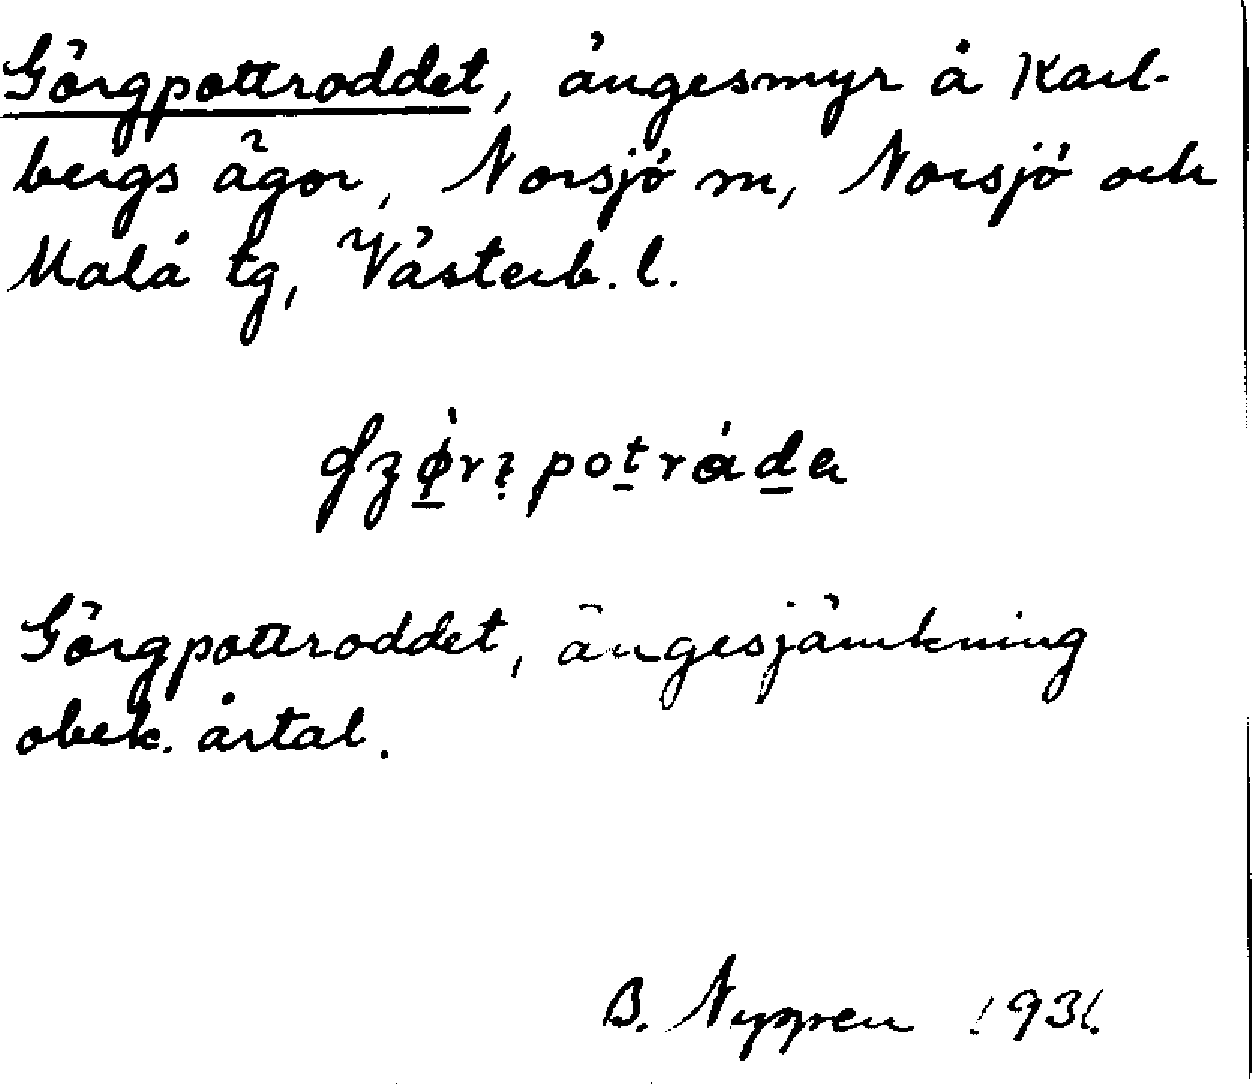 Görgpottroddet, ängesmyr å Karl-
bergs ägor, Norsjö sn, Norsjö och
Malå tg, Västerb. l.
Görgpottroddet, ängesjämkning
obek. årtal.
B. Nygren 1931.